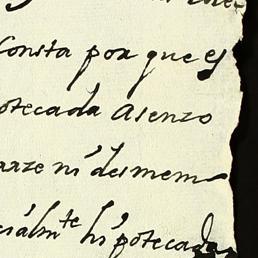 Consta por que es
potecada asenzo
arze ni desmem
cialmte hipotecada